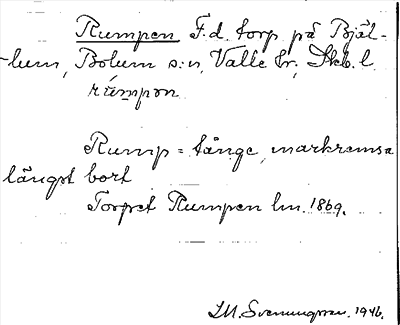 Rumpen F.d. torp på Bjäl-
lum, Bolum s:n, Valle hr, Skb. l.
rúmpən
Rump = tånge, markremsa
längst bort
Torpet Rumpen lm. 1869.
I.M. Svenungsson. 1946.